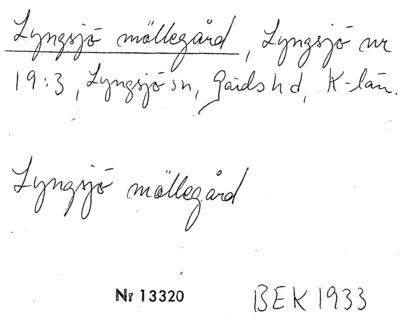 Lyngsjö möllegård, Lyngsjö nr
19:3, Lyngsjö sn, Gärds hd, K-län.
Lyngsjö möllegård
Nr 13320 BEK 1933